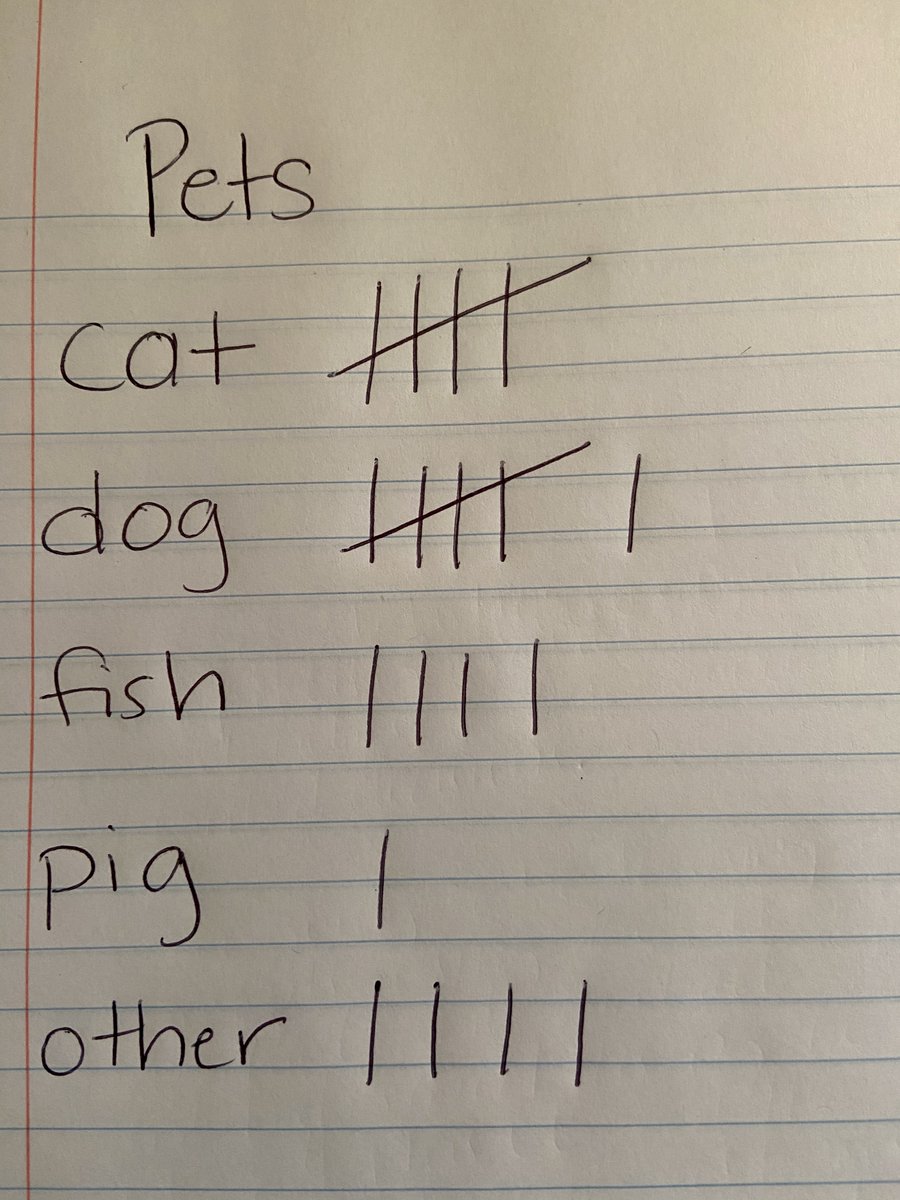 Pets
cat
dog
fish
pig
other